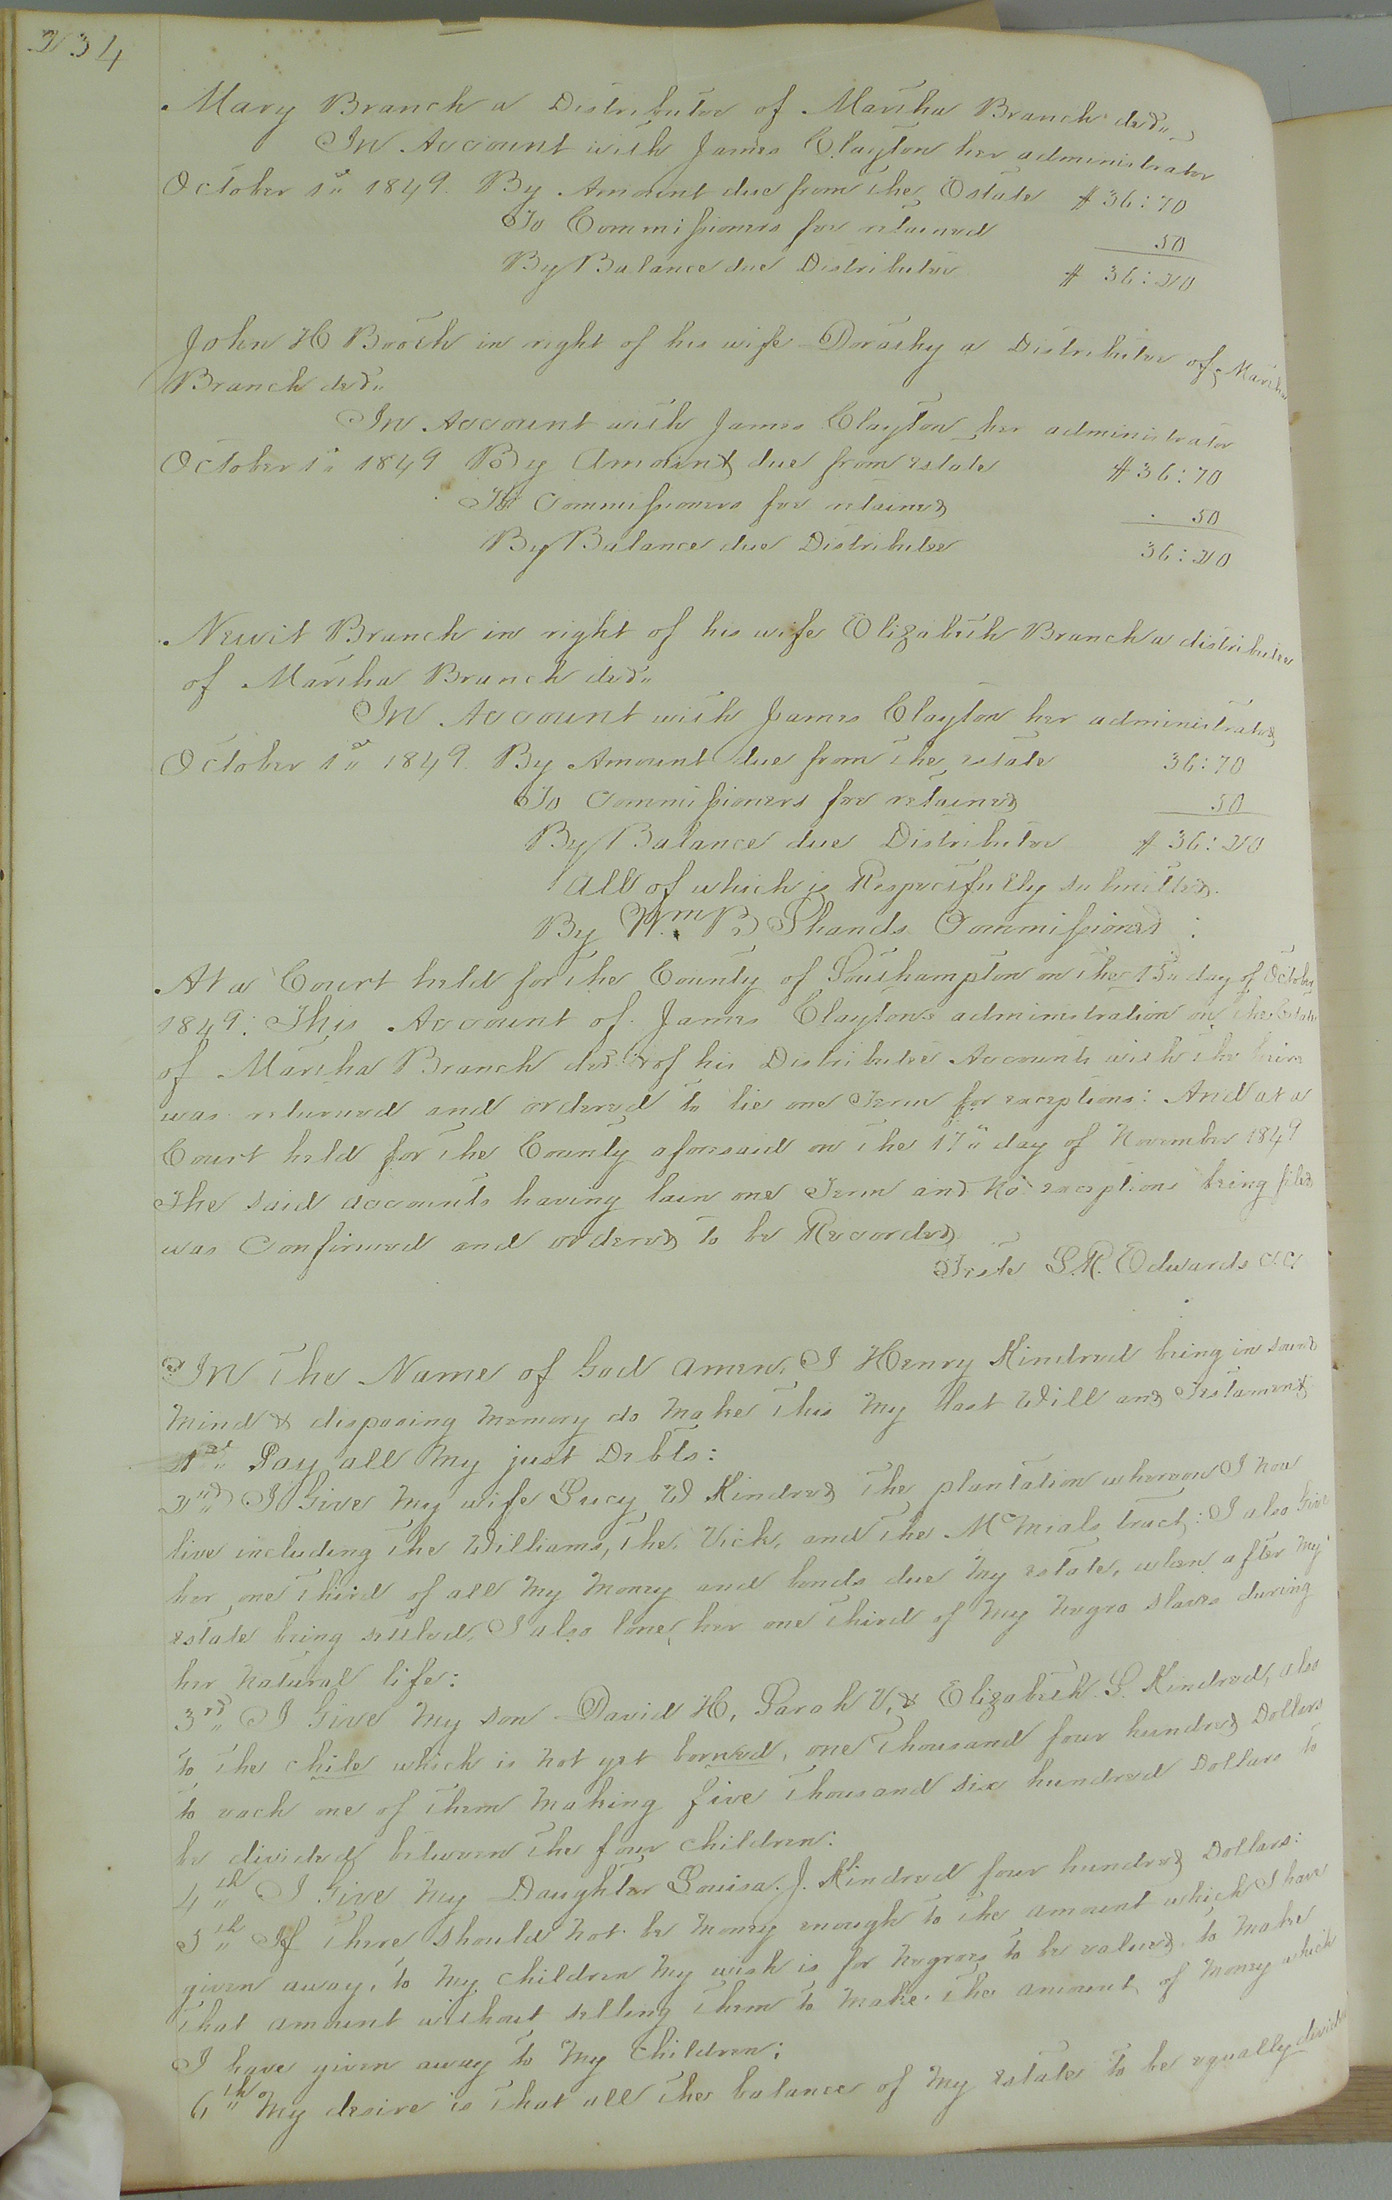 234
Mary Branch a Distributee of Martha Branch decd..
In Account with James Clayton her administrator
October 1st.. 1849. By Amount due from the Estate $ 36:70
To Commissioners fee retained 50
By Balance due Distributee $ 36:20
John H Booth in right of his wife Dorathy a Distributee of Martha
Branch decd..
In Account with James Clayton her administrator
October 1st 1849 By Amount due from estate $36:70
To Commissioners fee retained 50
By Balance due Distributee 36:20
Newit Branch in right of his wife Elizabeth Branch a distributee
of Martha Branch decd..
In Account with James Clayton her administrator
October 1st.. 1849. By Amount due from the estate 36:70
To Commissioners fee retained 50
By Balance due Distributee $ 36:20
All of which is Respectfully submitted.
By Wm. B Shands Commissioner :
At a Court held for the County of Southampton on the 15.. day of October
1849: This Account of James Claytons administration on the Estate
of Martha Branch decd & of his Distributee Accounts with the heirs
was returned and ordered to lie one Term for exceptions: And at a
Court held for the County aforesaid on the 17.. day of November 1849
The said accounts having lain one Term and No exceptions being filed
was Confirmed and ordered to be Recorded
Teste L.R. Edwards C.C.
In The Name of God amen, I Henry Kindred being in sound
Mind & disposing Memory do Make this My last Will and Testament
1st.. Pay all My just Debts:
2nd.. I Give My wife Lucy W Kindred The plantation whereon I now
live including The Williams, The Vick, and The McNials tract: I also Give
her one Third of all My Money and bonds due My estate, when after My
estate being settled, I also lone her one Third of My Negro slaves during
her Natural life:
3rd.. I Give My son David H, Sarah V, & Elizabeth S. Kindred, also
to the chile which is Not yet borned, one Thousand four hundred Dollars
to each one of them Making five Thousand six hundred Dollars to
be divided between the four children:
4th.. I Give My Daughter Louisa. J. Kindred four hundred Dollars:
5th.. If There should Not be Money enough to the amount which I have
given away, to My children My wish is for Negroes to be valued to Make
That amount without selling Them to Make the amount of Money which
I have given away to My Children:
6th.. My desire is That all the balance of My estate to be equally divided